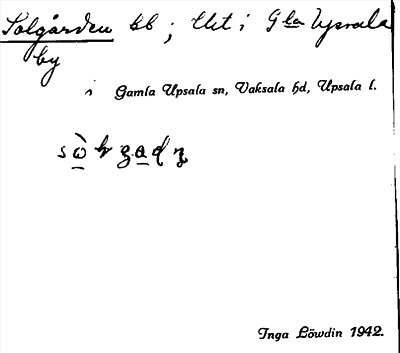 Solgården bb; Utt i Gla Upsala
by
i Gamla Upsala sn, Vaksala hd, Upsala l.
Inga Löwdin 1942.